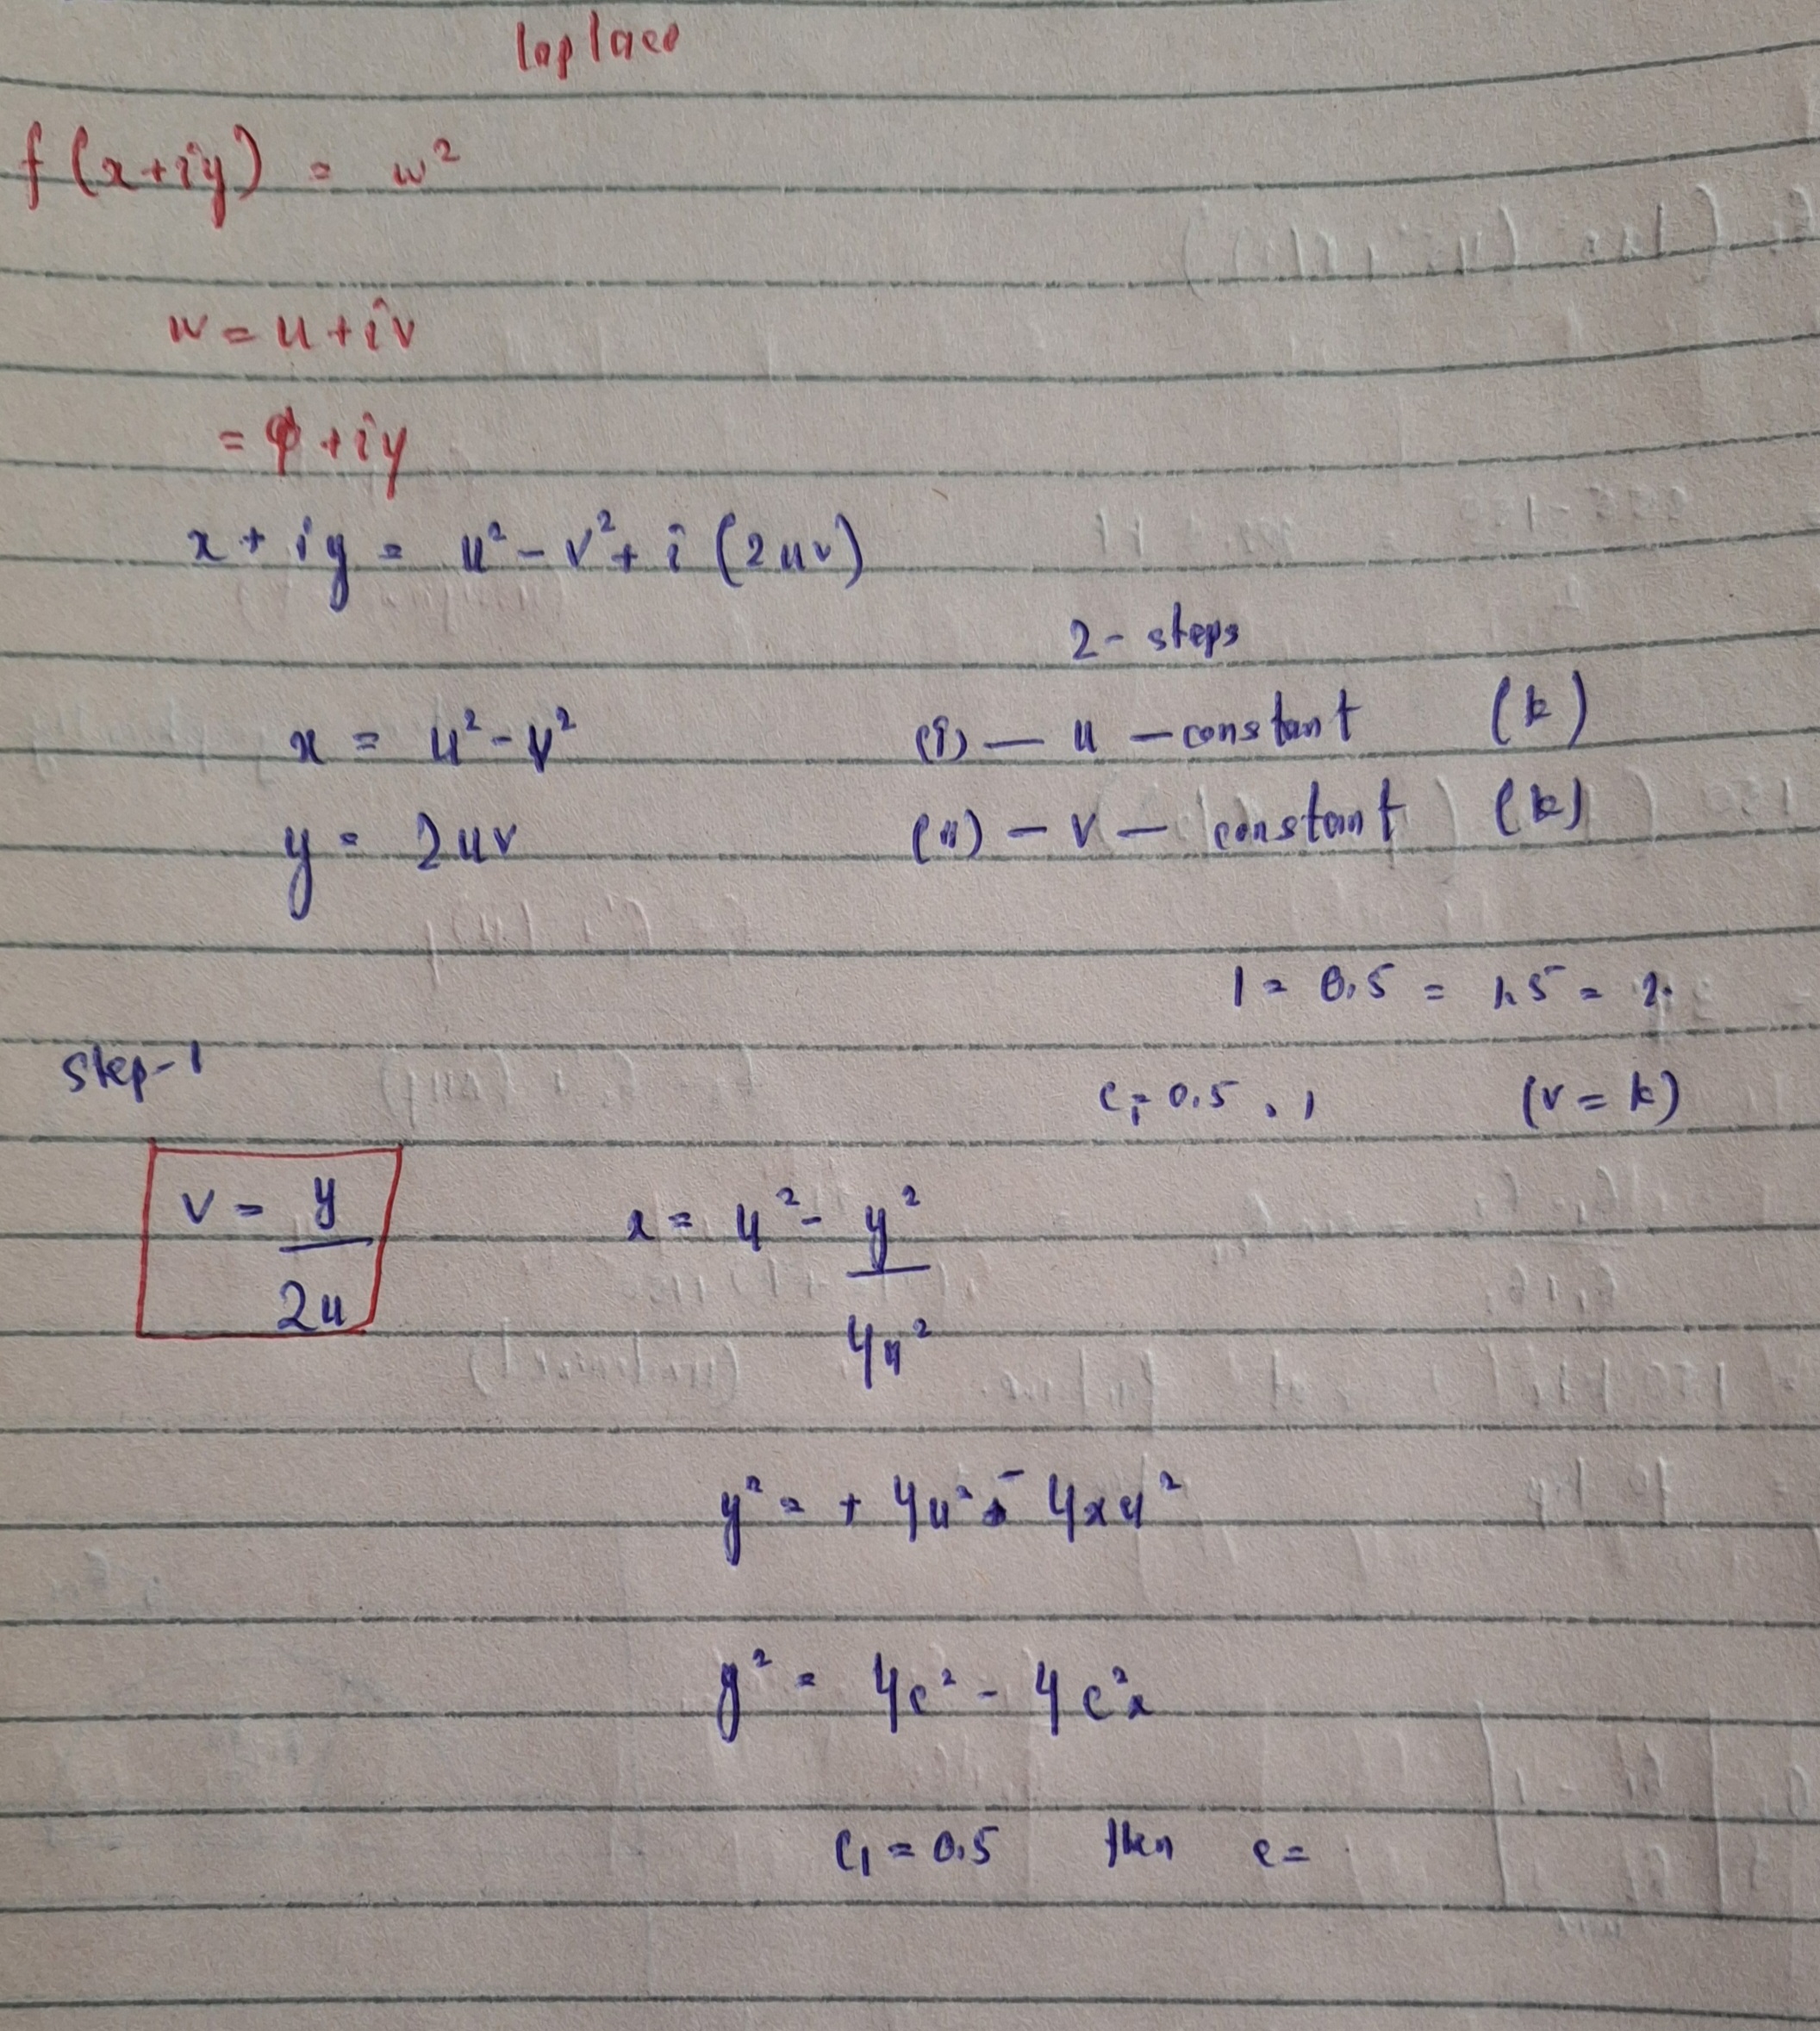 laplace
f(x+iy) = w²
w = u+iv
= φ+iy
x + iy = u² - v² + i (2uv)
2- steps
x = u² - v² (i) — u — constant (k)
y = 2uv (ii) — v — constant (k)
1 = 0.5 = 1.5 = 2.
Step-1
c₁ = 0.5, 1 (v = k)
v = y/2u x = u² - y²/4u²
y² = + 4u² - 4xu²
y² = 4c² - 4c²x
c₁ = 0.5 then c =